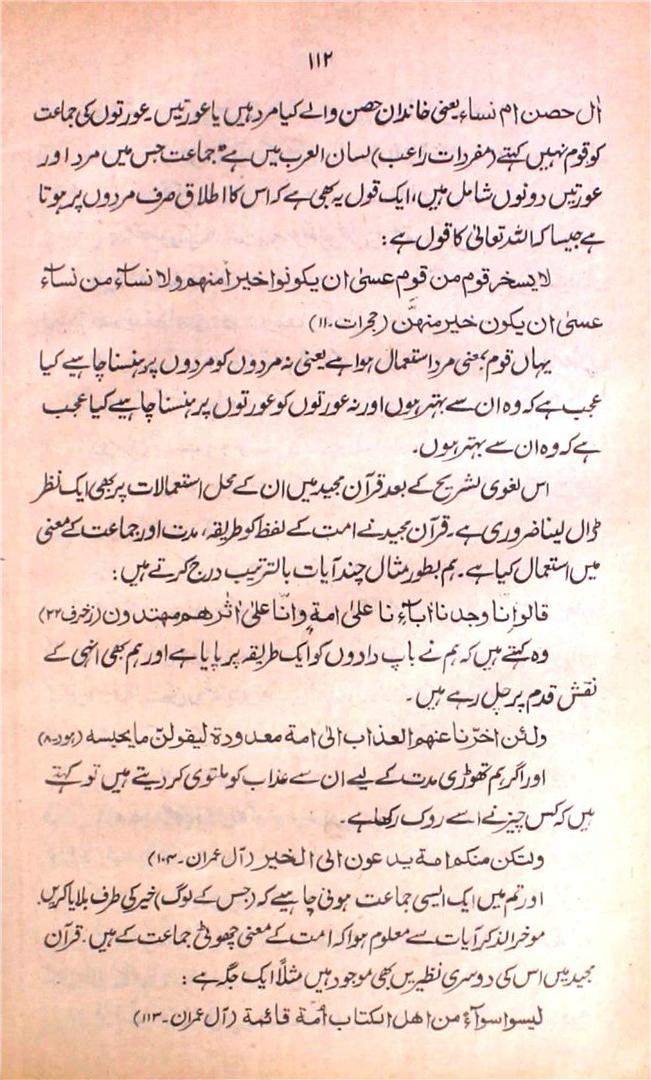 ۱۱۲
اٰل حصن ام نساء یعنی خاندان حصن والے کیا مرد ہیں یا عورتیں عورتوں کی جماعت
کو قوم نہیں کہتے (مفردات راغب) لسان العرب میں ہے "جماعت جس میں مرد اور
عورتیں دونوں شامل ہیں، ایک قول یہ بھی ہے کہ اس کا اطلاق صرف مردوں پر ہوتا
ہے جیسا کہ اللہ تعالیٰ کا قول ہے :
لا یسخر قوم من قوم عسیٰ ان یکونوا خیراً منہم ولا نساءٌ من نساءٍ
عسیٰ ان یکون خیر منھنَّ (حجرات۔۱۱)
یہاں قوم بمعنی مرد استعمال ہوا ہے یعنی نہ مردوں کو مردوں پر ہنسنا چاہیے کیا
عجب ہے کہ وہ ان سے بہتر ہوں اور نہ عورتوں کو عورتوں پر ہنسنا چاہیے کیا عجب
ہے کہ وہ ان سے بہتر ہوں۔
اس لغوی تشریح کے بعد قرآن مجید میں ان کے محل استعمالات پر بھی ایک نظر
ڈال لینا ضروری ہے۔ قرآن مجید نے امت کے لفظ کو طریقہ، مدت اور جماعت کے معنی
میں استعمال کیا ہے۔ ہم بطور مثال چند آیات بالترتیب درج کرتے ہیں :
قالوا انّا وجدنا اٰباءنا علیٰ امةٍ وانّا علیٰ اٰثٰرھم مھتدون (زخرف ۲۲)
وہ کہتے ہیں کہ ہم نے باپ دادوں کو ایک طریقہ پر پایا ہے اور ہم بھی انہی کے
نقش قدم پر چل رہے ہیں۔
ولئن اخّرنا عنھم العذاب الیٰ امة معدودة لیقولنّ ما یحبسه (ہود۔۸)
اور اگر ہم تھوڑی مدت کے لیے ان سے عذاب کو ملتوی کر دیتے ہیں تو کہتے
ہیں کہ کس چیز نے اسے روک رکھا ہے۔
ولتکن منکم امة یدعون الی الخیر (آل عمران۔۱۰۳)
اور تم میں ایک ایسی جماعت ہونی چاہیے کہ (جس کے لوگ) خیر کی طرف بلایا کریں۔
موخرالذکر آیات سے معلوم ہوا کہ امت کے معنی چھوٹی جماعت کے ہیں۔ قرآن
مجید میں اس کی دوسری نظیریں بھی موجود ہیں مثلاً ایک جگہ ہے :
لیسوا سوآءً من اھل الکتاب اُمّة قائمة (آل عمران۔۱۱۳)